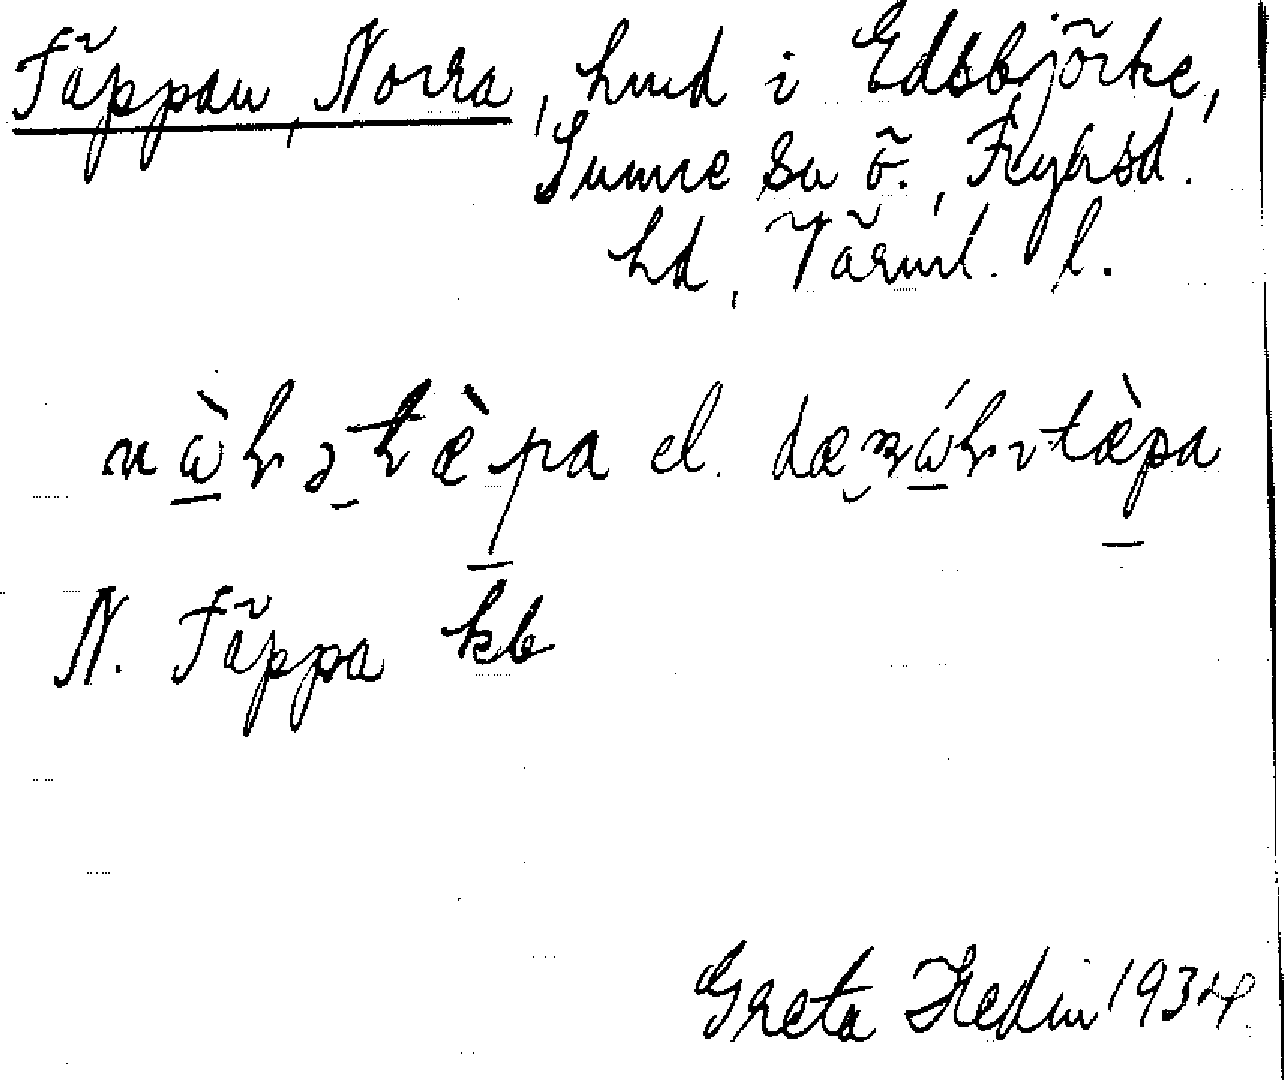 Täppan, Norra, hmd i Edsbjörke,
Sunne sn ö., Fryksd.
hd, Värml. l.
el.
N. Täppa kb
Greta Hedin 1934.